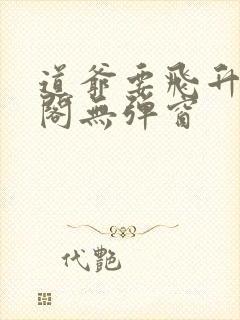 道爺要飛升
閣無彈窗
代艷